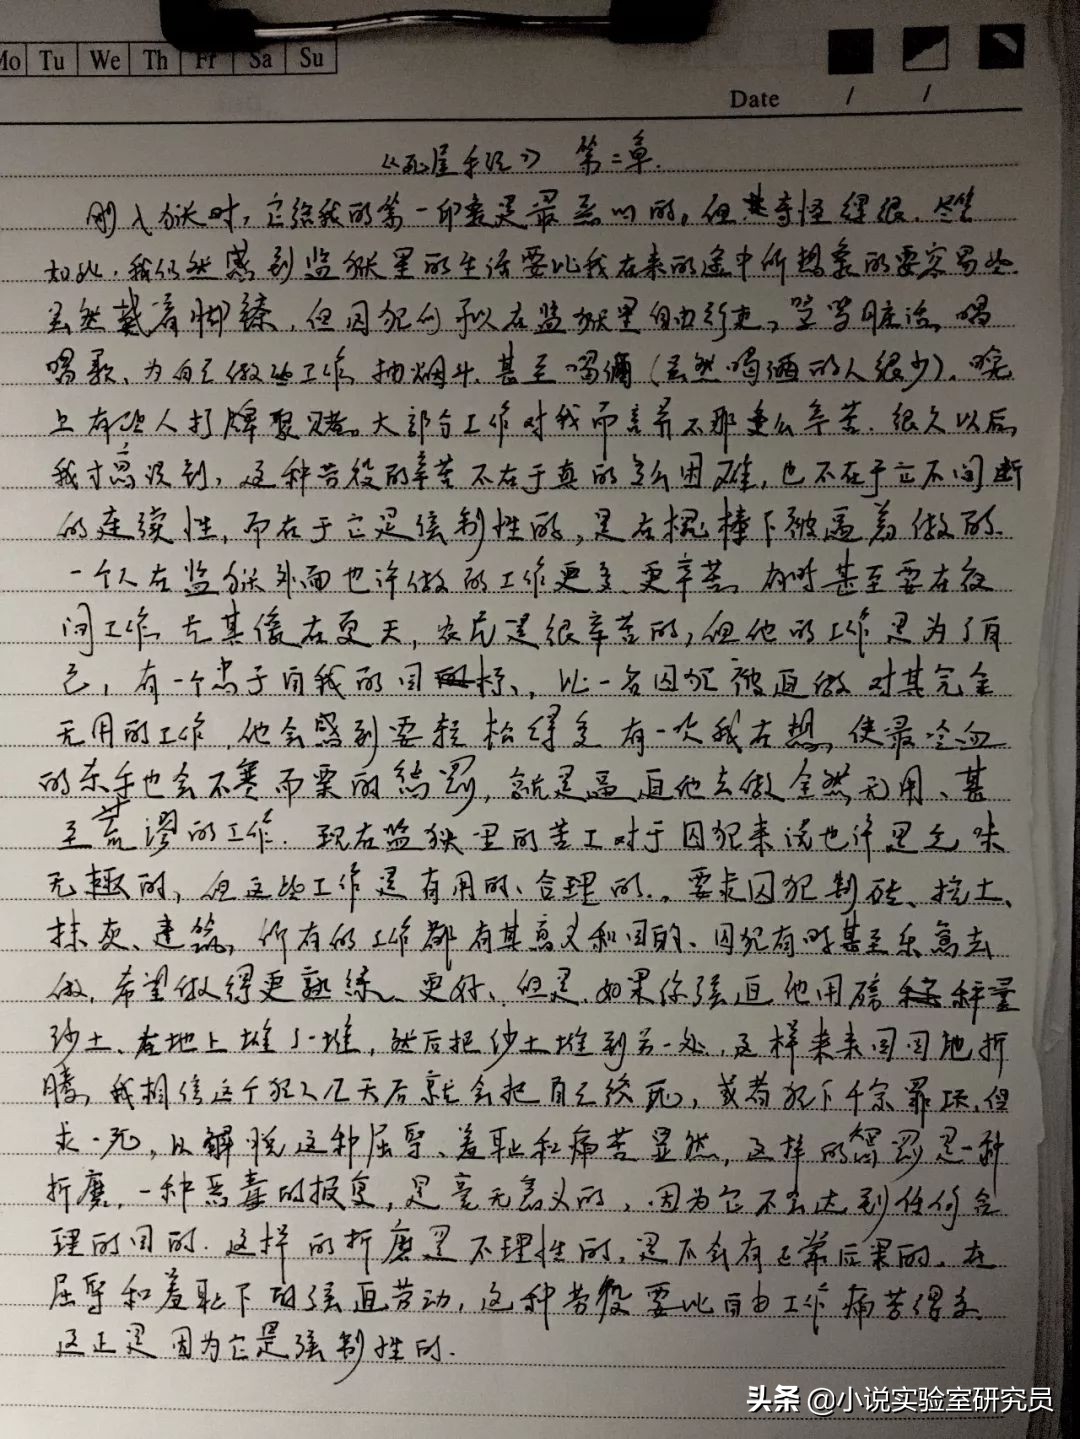 Mo Tu We Th Fr Sa Su
Date / /
《死屋手记》 第二章.
刚入狱时,它给我的第一印象是最恶心的,但奇怪得很.尽管
如此.我仍然感到监狱里的生活要比我在来的途中所想象的要容易些
虽然戴着脚镣,但囚犯们可以在监狱里自由行走,、喝
唱歌、为自己做些工作,抽烟斗.甚至喝酒(虽然喝酒的人很少).晚
上有些人打牌聚赌。大部分工作对我而言并不那么辛苦.很久以后,
我才意识到,这种劳役的辛苦不在于真的多么困难,也不在于它不间断
的连续性,而在于它是强制性的,是在棍棒下被逼着做的.
一个人在监狱外面也许做的工作更多、更辛苦,有时甚至要在夜
间工作,尤其像在夏天,农民是很辛苦的,但他的工作是为了自
己,有一个忠于自我的目标,比一名囚犯被迫做对其完全
无用的工作,他会感到要轻松得多 有一次我在想,使最冷血
的杀手也会不寒而栗的惩罚,就是逼迫他去做全然无用、甚
至荒谬的工作.现在监狱里的苦工对于囚犯来说也许是乏味
无趣的,但这些工作是有用的、合理的.要求囚犯制砖、挖土、
抹灰、建筑,所有的工作都有其意义和目的、囚犯有时甚至乐意去
做,希望做得更熟练、更好、但是,如果你强迫他用磅秤量
沙土、在地上堆了一堆,然后把沙土堆到另一处,这样来来回回地折
腾,我相信这个犯人几天后就会把自己绞死,或者犯下千宗罪,但
求一死,以解脱这种屈辱、羞耻和痛苦 显然,这样的惩罚是一种
折磨,一种恶毒的报复,是毫无意义的,因为它不会达到任何合
理的目的.这样的折磨是不理性的,是不会有正常后果的,在
屈辱和羞耻下的强迫劳动,这种劳役要比自由工作痛苦得多
这正是因为它是强制性的.
头条@小说实验室研究员